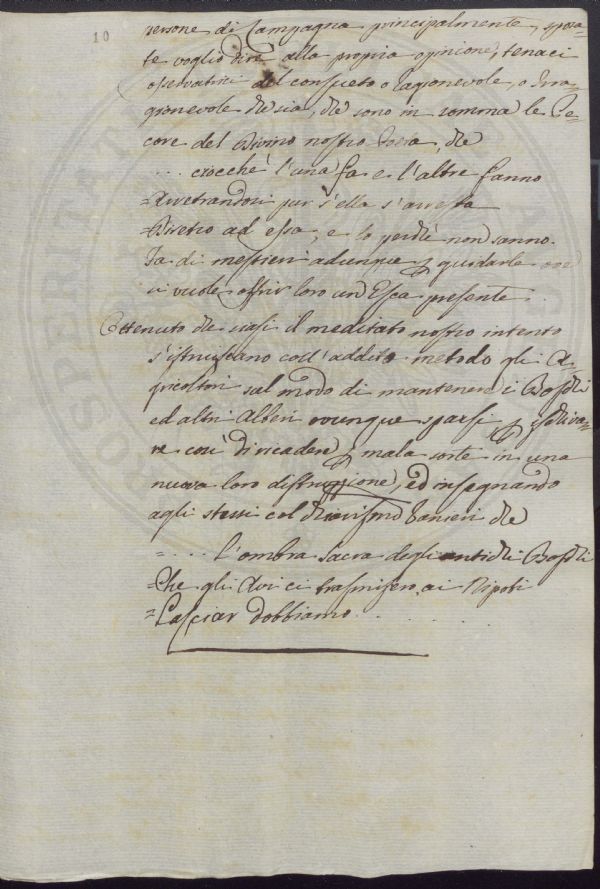 10
persone di Campagna principalmente, sposa=
te voglio dire alla propria opinione, tenaci
osservatrici del consueto o ragionevole, o irra=
gionevole che sia, che sono in somma le Pe=
core del Divino nostro Poeta, che
... ciocchè l'una fa e l'altre fanno
=Arretrandosi pur s'ella s'arresta
=Dietro ad essa, e lo perchè non sanno.
Fa di mestieri adunque p guidarle ove
si vuole offrir loro un Esca presente.
Ottenuto che siasi il meditato nostro intento
s'istruiscano coll'addito metodo gli A=
gricoltori sul modo di mantenere i Boschi
ed altri Alberi ovunque sparsi, p ischiva=
re così di ricadere p mala sorte in una
nuova loro distruzione, ed insegnando
agli stessi col che
=.... L'ombra sacra degli antichi Boschi
=Che gli Avi ci trasmisero, ai Nipoti
=Lasciar dobbiamo.....
PROSPERITATI